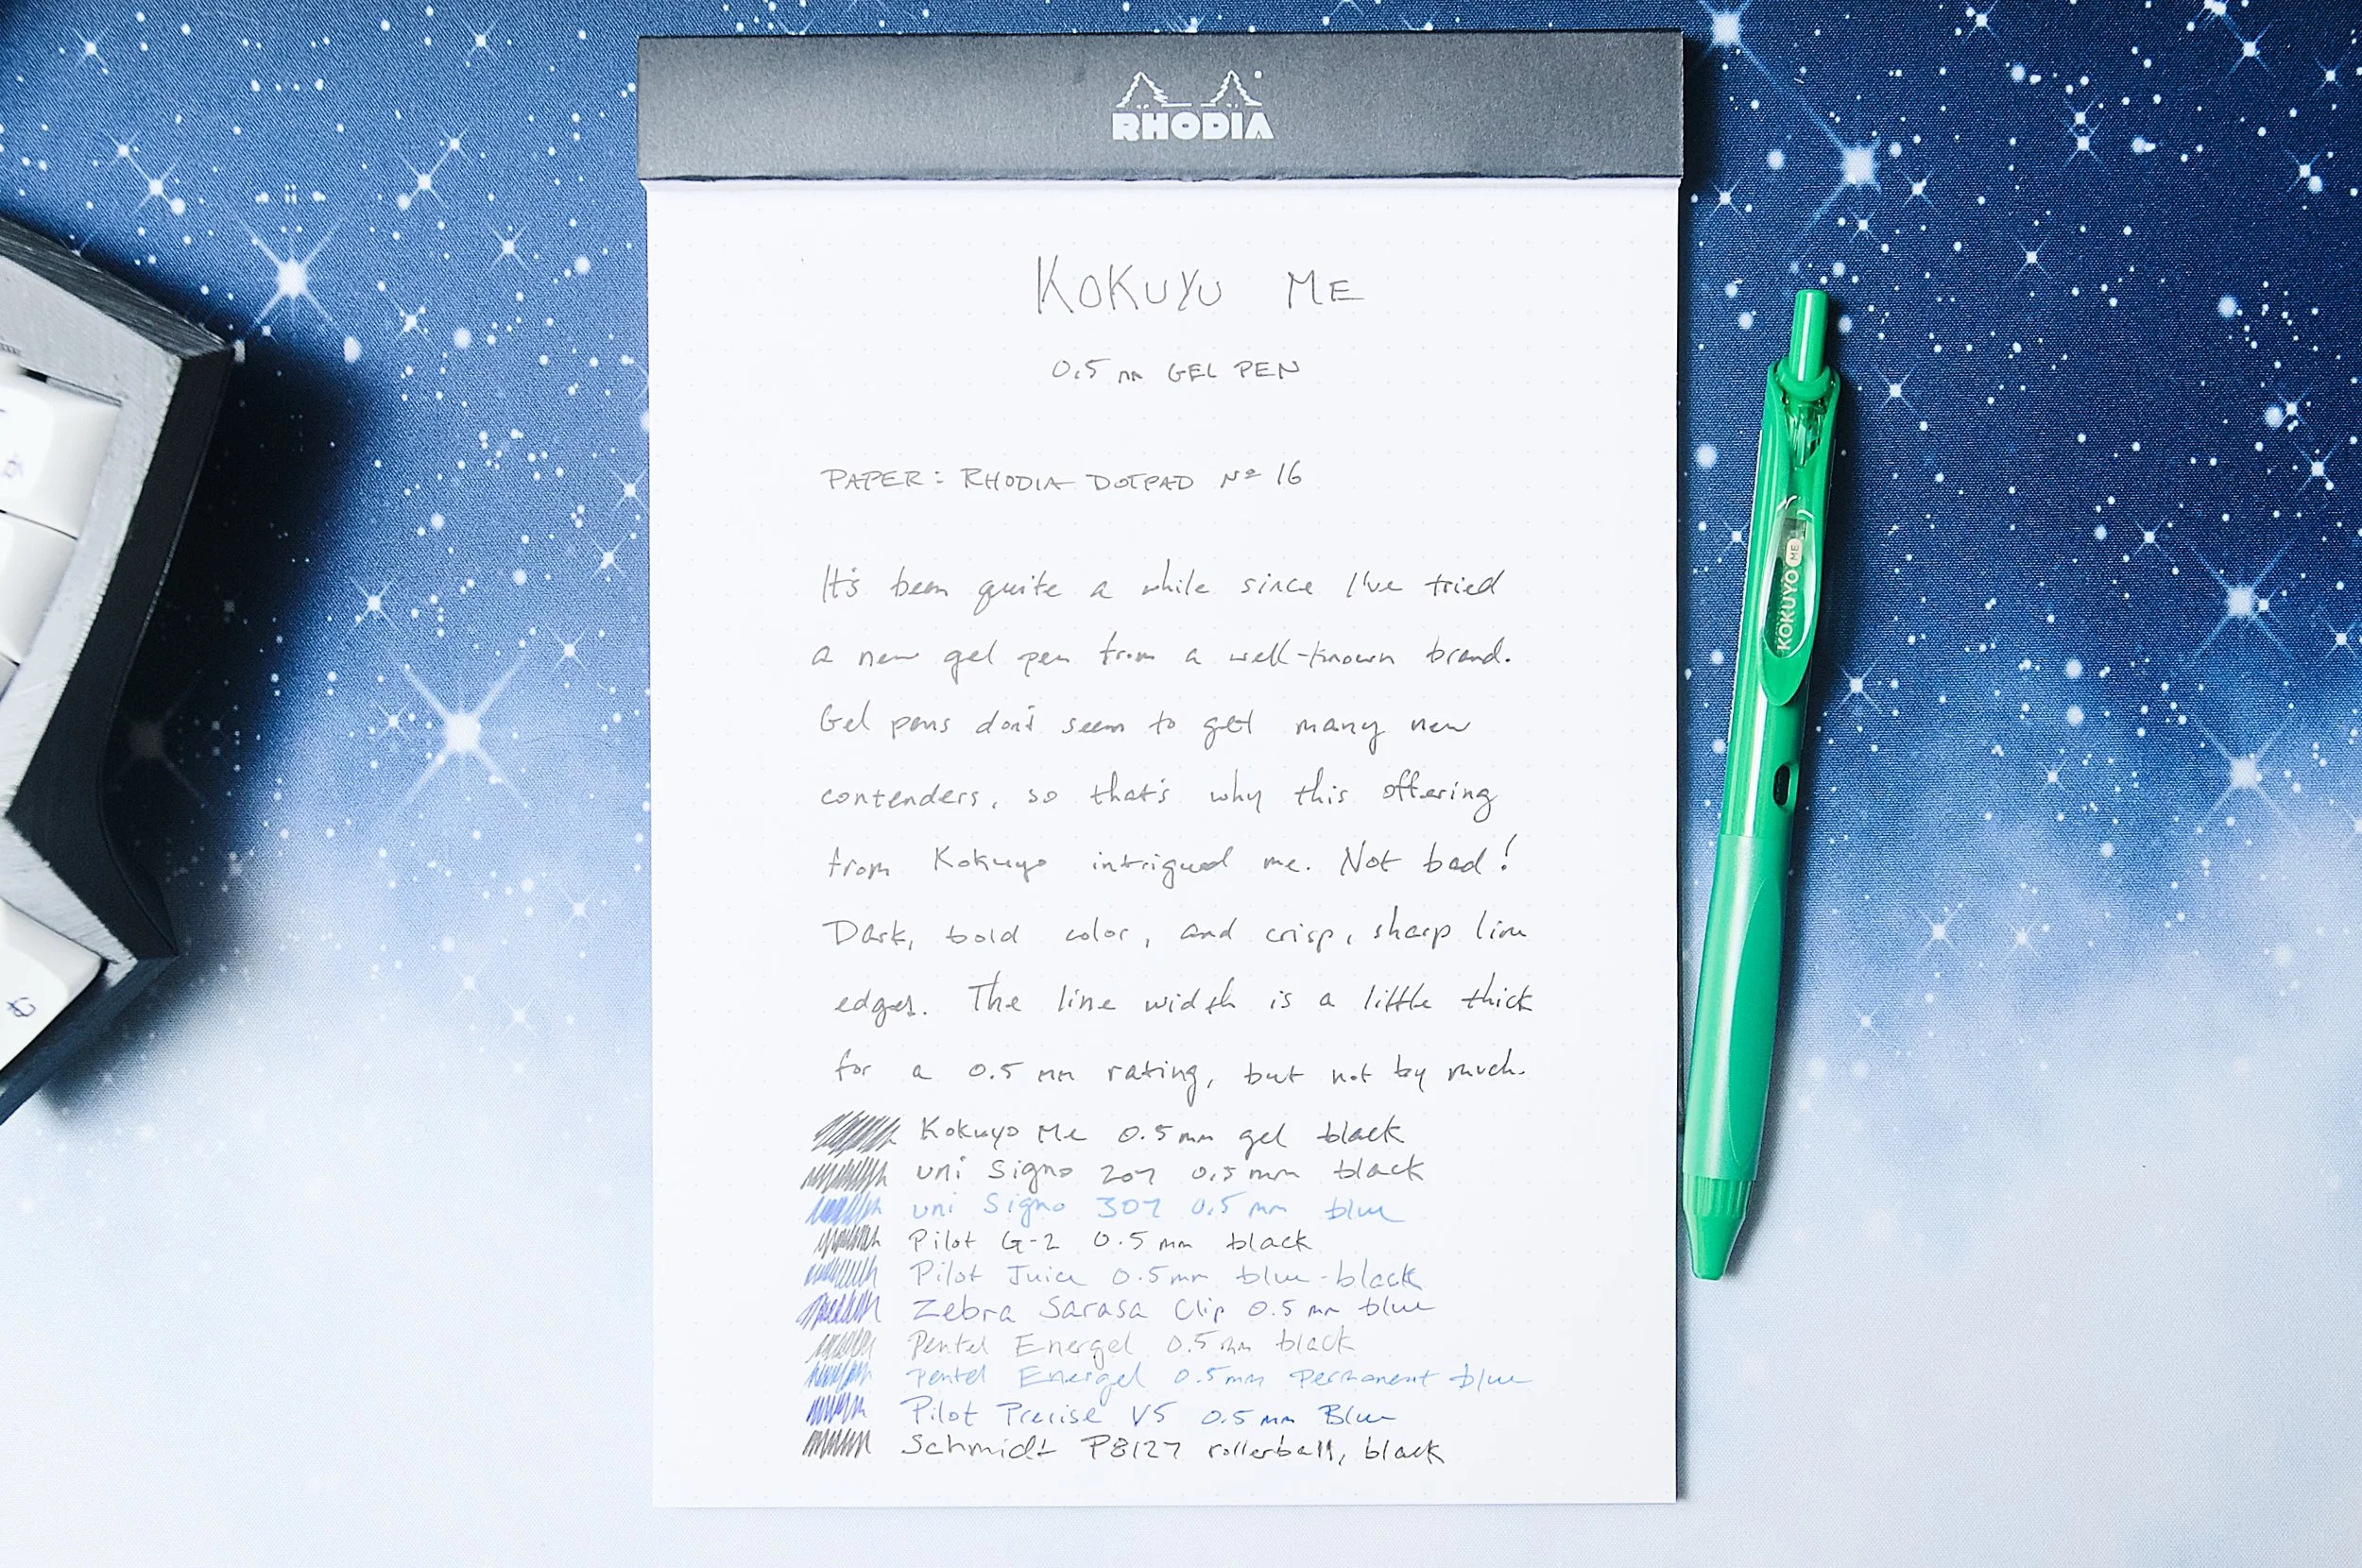 RHODIA
KOKUYO ME
0.5 mm GEL PEN
PAPER: RHODIA DOTPAD Nº 16
It's been quite a while since I've tried
a new gel pen from a well-known brand.
Gel pens don't seem to get many new
contenders, so that's why this offering
from Kokuyo intrigued me. Not bad!
Dark, bold color, and crisp, sharp line
edges. The line width is a little thick
for a 0.5 mm rating, but not by much.
Kokuyo Me 0.5mm gel black
uni Signo 207 0.5mm black
uni Signo 307 0.5 mm blue
Pilot G-2 0.5 mm black
Pilot Juice 0.5mm blue-black
Zebra Sarasa Clip 0.5 mm blue
Pentel Energel 0.5mm black
Pentel Energel 0.5mm Permanent blue
Pilot Precise V5 0.5 mm Blue
Schmidt P8127 rollerball, black
KOKUYO ME